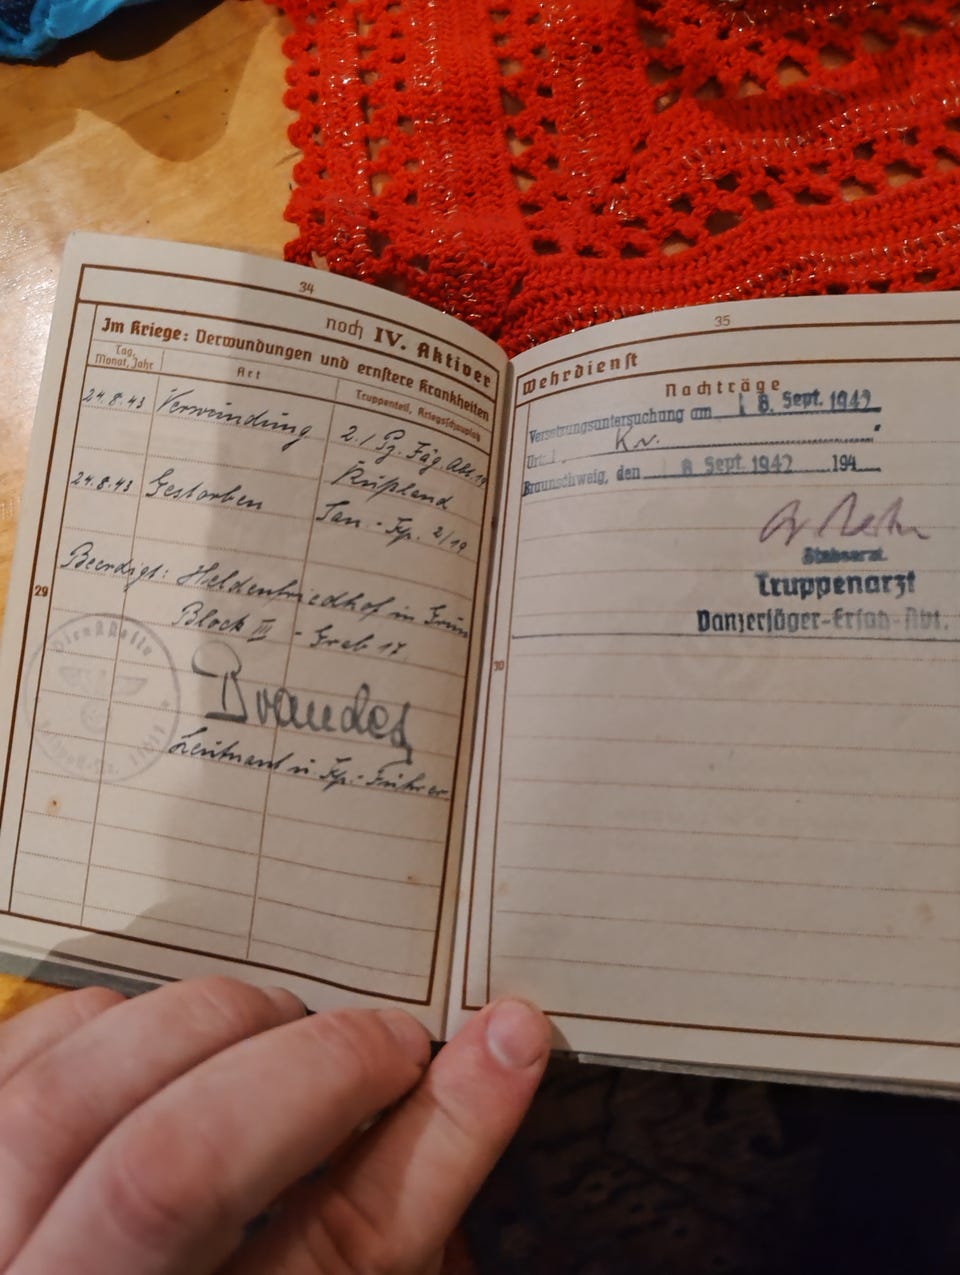 34
noch IV. Aktiver
Im Kriege: Verwundungen und ernstere Krankheiten
Tag, Monat, Jahr
Art
Truppenteil, Kriegsschauplatz
24.8.43 Verwundung 2./Pz. Jäg. Abt. 19
Rußland
24.8.43 Gestorben San.-Kp. 2/19
Beerdigt: Heldenfriedhof in
Block III - Grab 17.
Brandes
Leutnant u. Kp.-Führer
Dienststelle
29
35
Wehrdienst
Nachträge
Versetzungsuntersuchung am 18. Sept. 1942
Urt. Kv.
Braunschweig, den 8 Sept. 1942 194
Stabsarzt.
Truppenarzt
Panzerjäger-Ersatz-Abt.
30